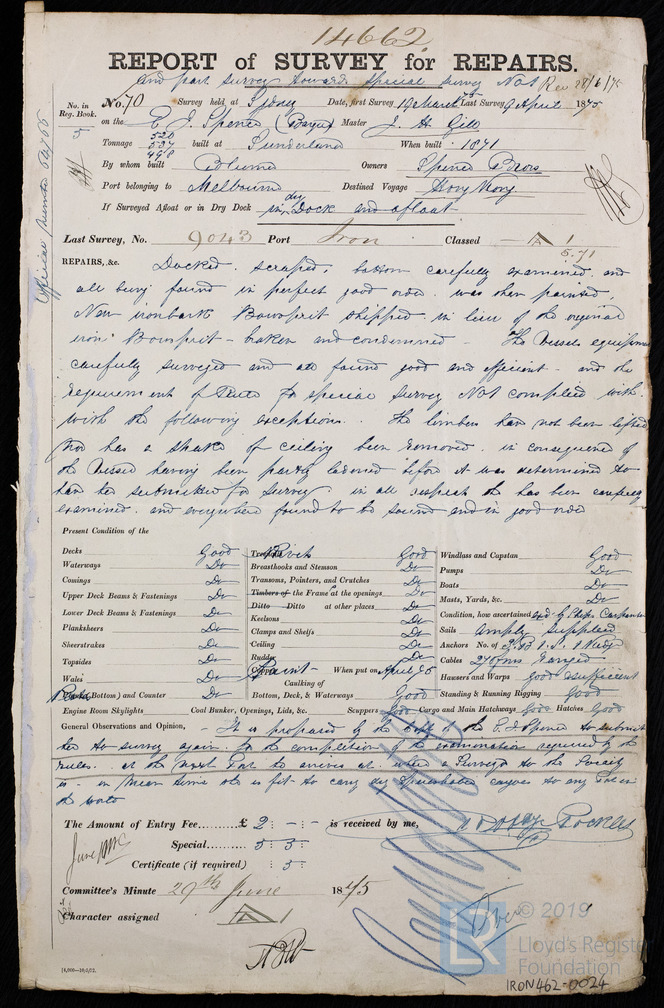 14662
REPORT of SURVEY for REPAIRS.
and part survey towards special survey No 1 Rec 28/6/75
No. in Reg. Book. 5
No. 70 Survey held at Sydney Date, first Survey 19 March 75 Last Survey 9 April 1875
on the E. J. Spence (Barque) Master J. H. Gill
Tonnage 520 537 498 built at Sunderland When built 1871
By whom built Blumer Owners Spence Bros
Port belonging to Melbourne Destined Voyage Hong Kong
If Surveyed Afloat or in Dry Dock in dry Dock and afloat
Last Survey, No. 9043 Port Iron Classed A 1
5.71
REPAIRS, &c. Docked, scraped, bottom carefully examined and
all being found in perfect good order was then painted
New ironbark Bowsprit shipped in lieu of the original
iron Bowsprit - broken and condemned - The Vessels equipment
carefully surveyed and all found good and efficient - and the
requirements of Rules for special survey No 1 complied with
with the following exceptions. The limbers had not been lifted
Nor has a strake of ceiling been removed in consequence of
the Vessel having been partly ladened before it was determined to
have her submitted for survey in all respects she has been carefully
examined and everywhere found to be sound and in good order
Present Condition of the
Decks Good
Waterways Do
Comings Do
Upper Deck Beams & Fastenings Do
Lower Deck Beams & Fastenings Do
Planksheers Do
Sheerstrakes Do
Topsides Do
Wales Do
(Bottom) and Counter Do
Engine Room Skylights
Good
Breasthooks and Stemson Do
Transoms, Pointers, and Crutches Do
Timbers of the Frame at the openings Do
Ditto Ditto at other places Do
Keelsons Do
Clamps and Shelfs Do
Ceiling Do
Rudder Do
Paint When put on April 75
Caulking of
Bottom, Deck, & Waterways Good
Coal Bunker, Openings, Lids, &c. Scuppers Good Cargo and Main Hatchways Good Hatches Good
Windlass and Capstan Good
Pumps Do
Boats Do
Masts, Yards, &c. Do
Condition, how ascertained by Ships Carpenter
Sails Amply supplied
Anchors No. of
Cables 270 fms ranged
Hawsers and Warps Good & sufficient
Standing & Running Rigging Good
General Observations and Opinion, - It is proposed by the of the E. J. Spence to submit
her to survey again for the completion of the examination required by the
rules at the next Port he arrives at where a Surveyor to the Society
is - in mean time she is fit to carry dry & perishable cargoes to any Port in
the world
The Amount of Entry Fee......... £ 2 : - : - is received by me,
Special....... 5 : 5 :
Certificate (if required) : 5 :
Committee's Minute 29th June 1875
Character assigned A 1
18,000—10/5/72.
© 2019
LR
Lloyd's Register
Foundation
IRON462-0024